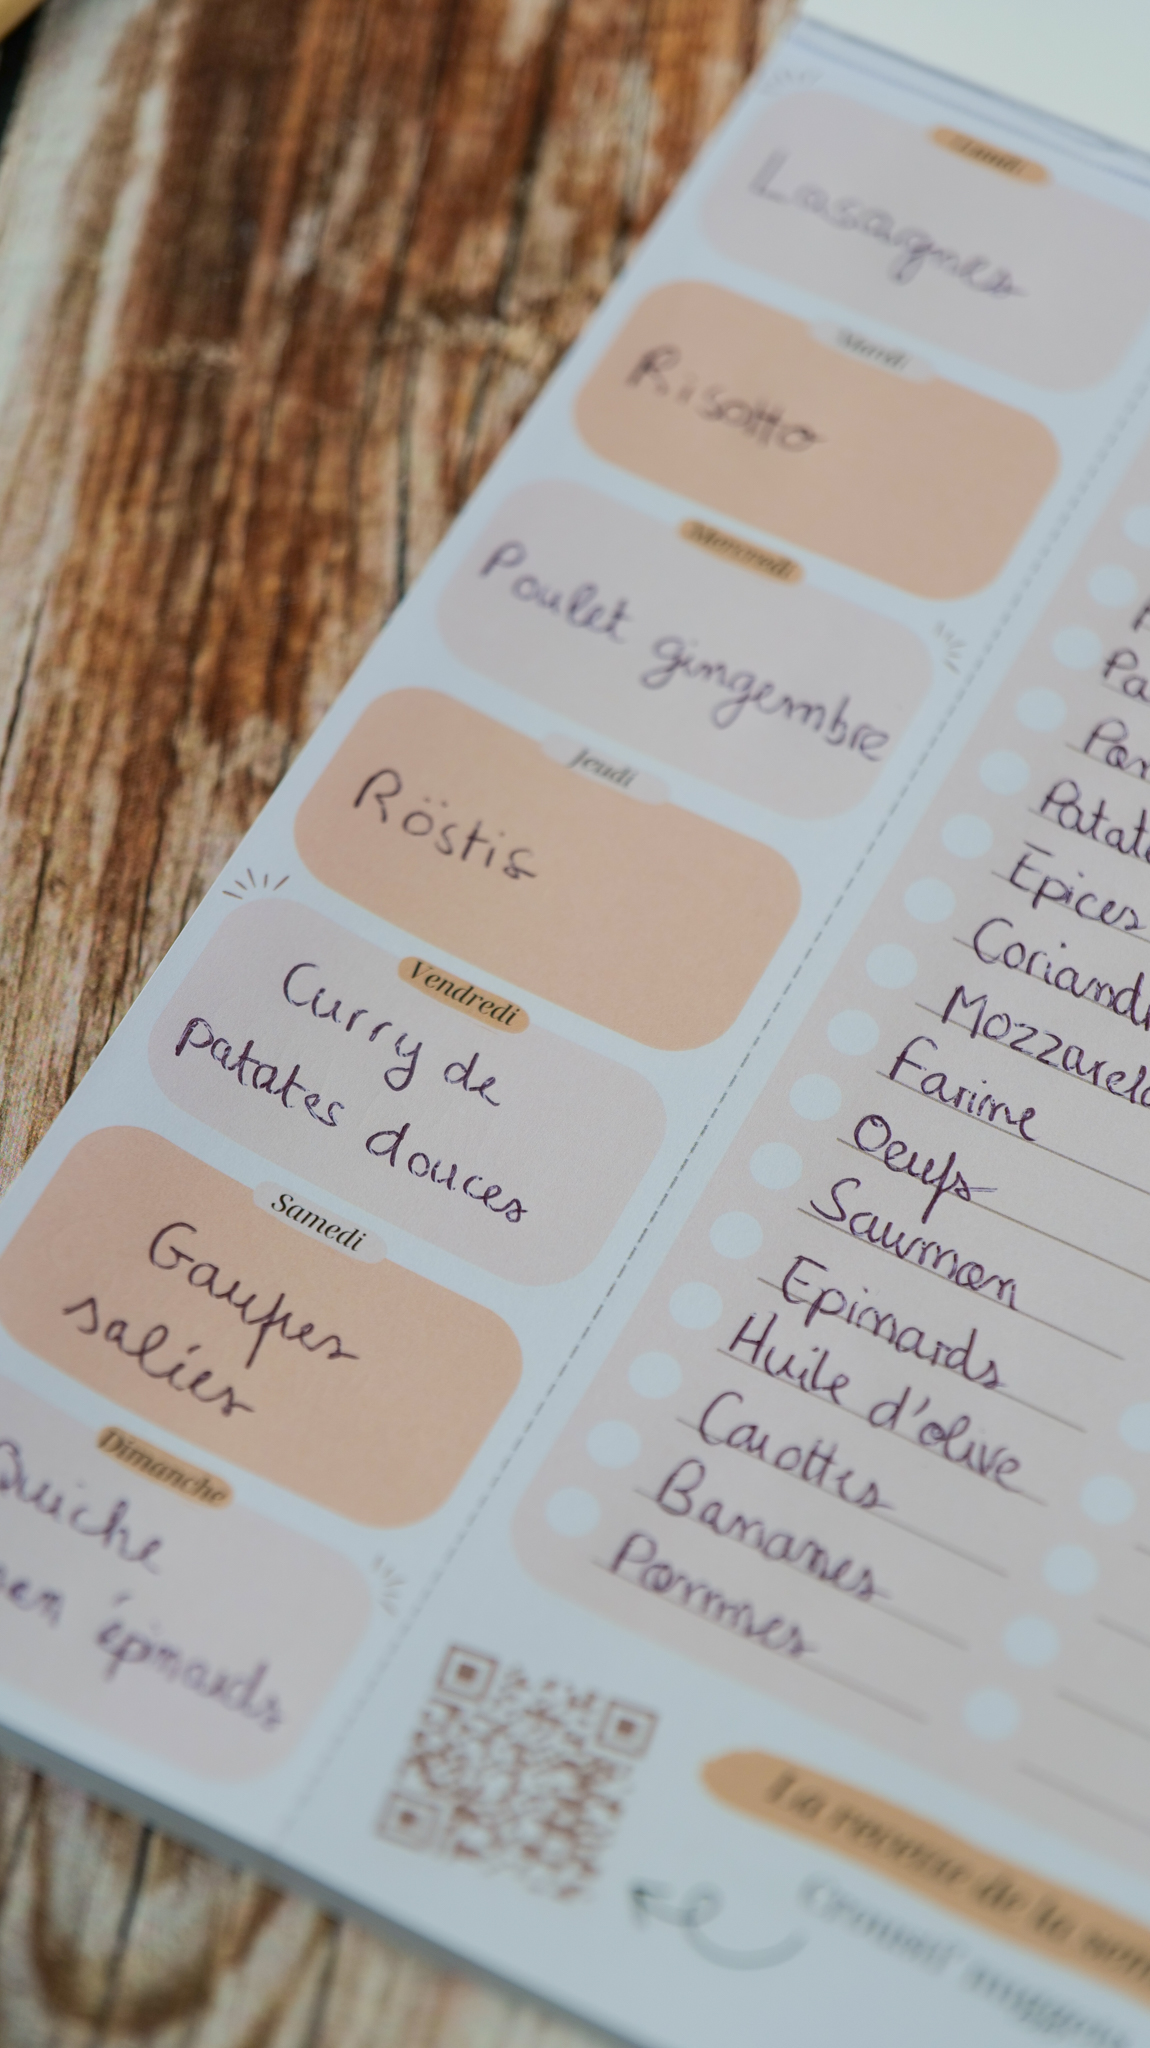 Lundi
Lasagnes
Mardi
Risotto
Mercredi
Poulet gingembre
Jeudi
Röstis
Vendredi
Curry de
patates douces
Samedi
Gaufres
salées
Dimanche
Quiche
épinards
Patat
Epices
Coriand
Mozzarel
Farine
Oeufs
Saumon
Epinards
Huile d'olive
Carottes
Bananes
Pommes
La recette de la